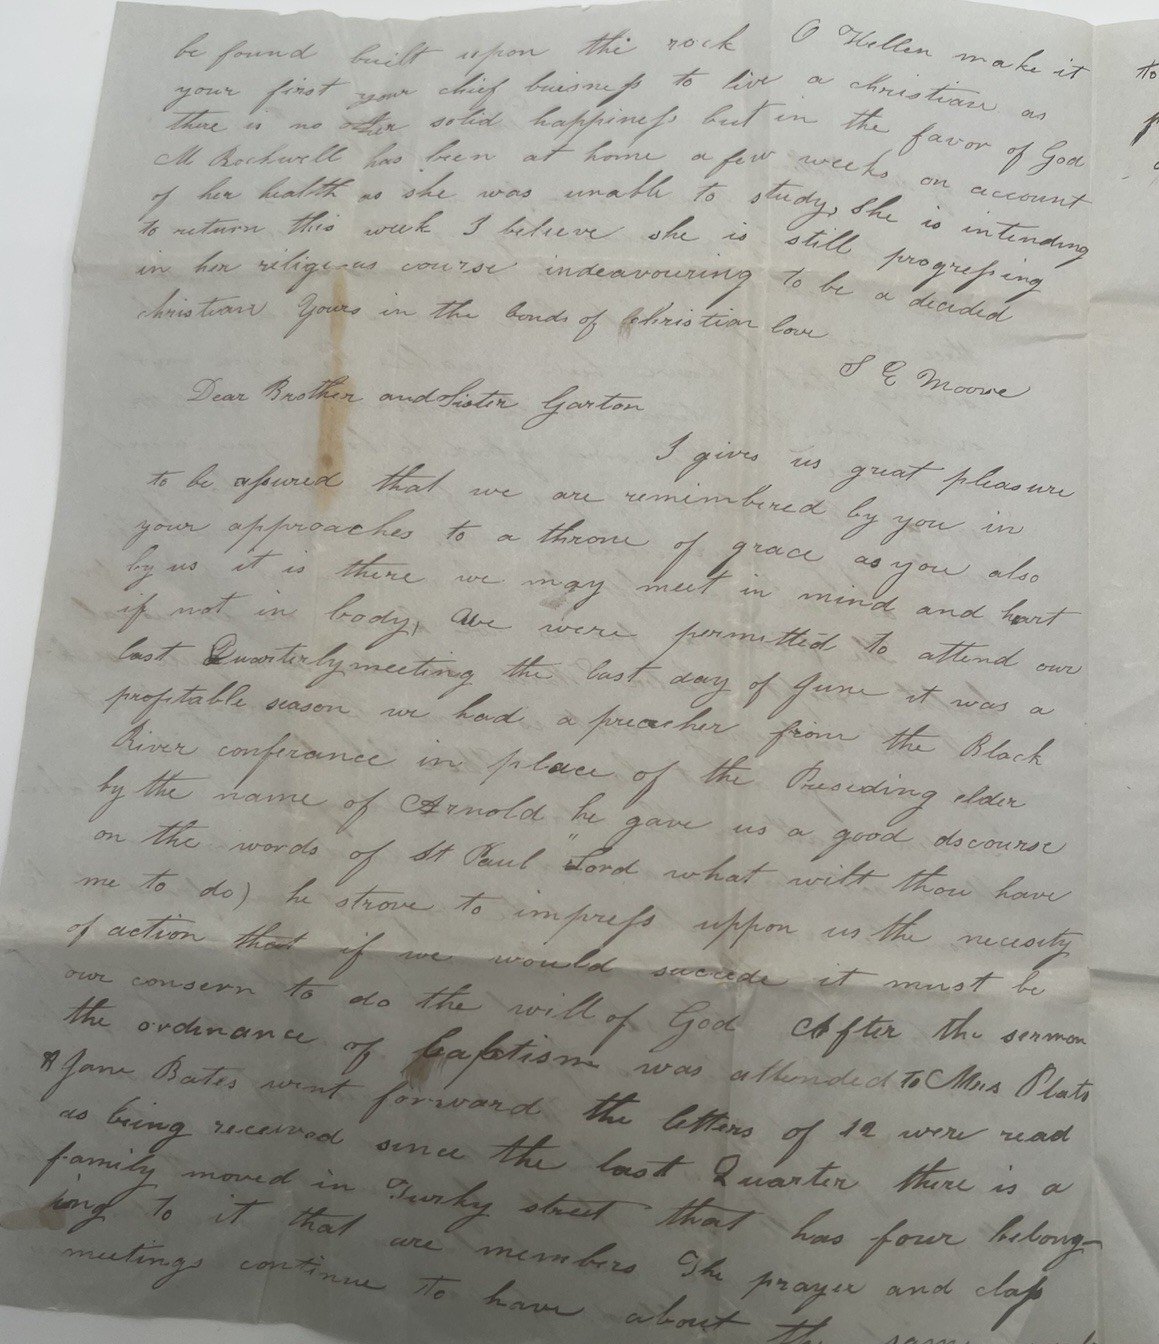 be found built upon the rock O Hellen make it
your first your chief buisness to live a christian as
there is no other solid happiness but in the favor of God
M Rockwell has been at home a few weeks on account
of her health as she was unable to study, she is intending
to return this week I believe she is still progressing
in her religious course indeavouring to be a decided
christian Yours in the bonds of Christian love
S E Moore
Dear Brother and Sister Garton
I gives us great pleasure
to be assured that we are remembered by you in
your approaches to a throne of grace as you also
by us it is there we may meet in mind and heart
if not in body, we were permitted to attend our
last Quarterly meeting the last day of June it was a
profitable season we had a preacher from the Black
River conferance in place of the Presiding elder
by the name of Arnold he gave us a good dscourse
on the words of St Paul "Lord what wilt thou have
me to do) he strove to impress uppon us the necesity
of action that if we would succede it must be
our consern to do the will of God After the sermon
the ordinance of baptism was attended to Mrs Plats
& Jane Bates went forward the letters of 12 were read
as being received since the last Quarter there is a
family moved in Turky street that has four belong-
ing to it that are members The prayer and class
meetings continue to have about the same
to